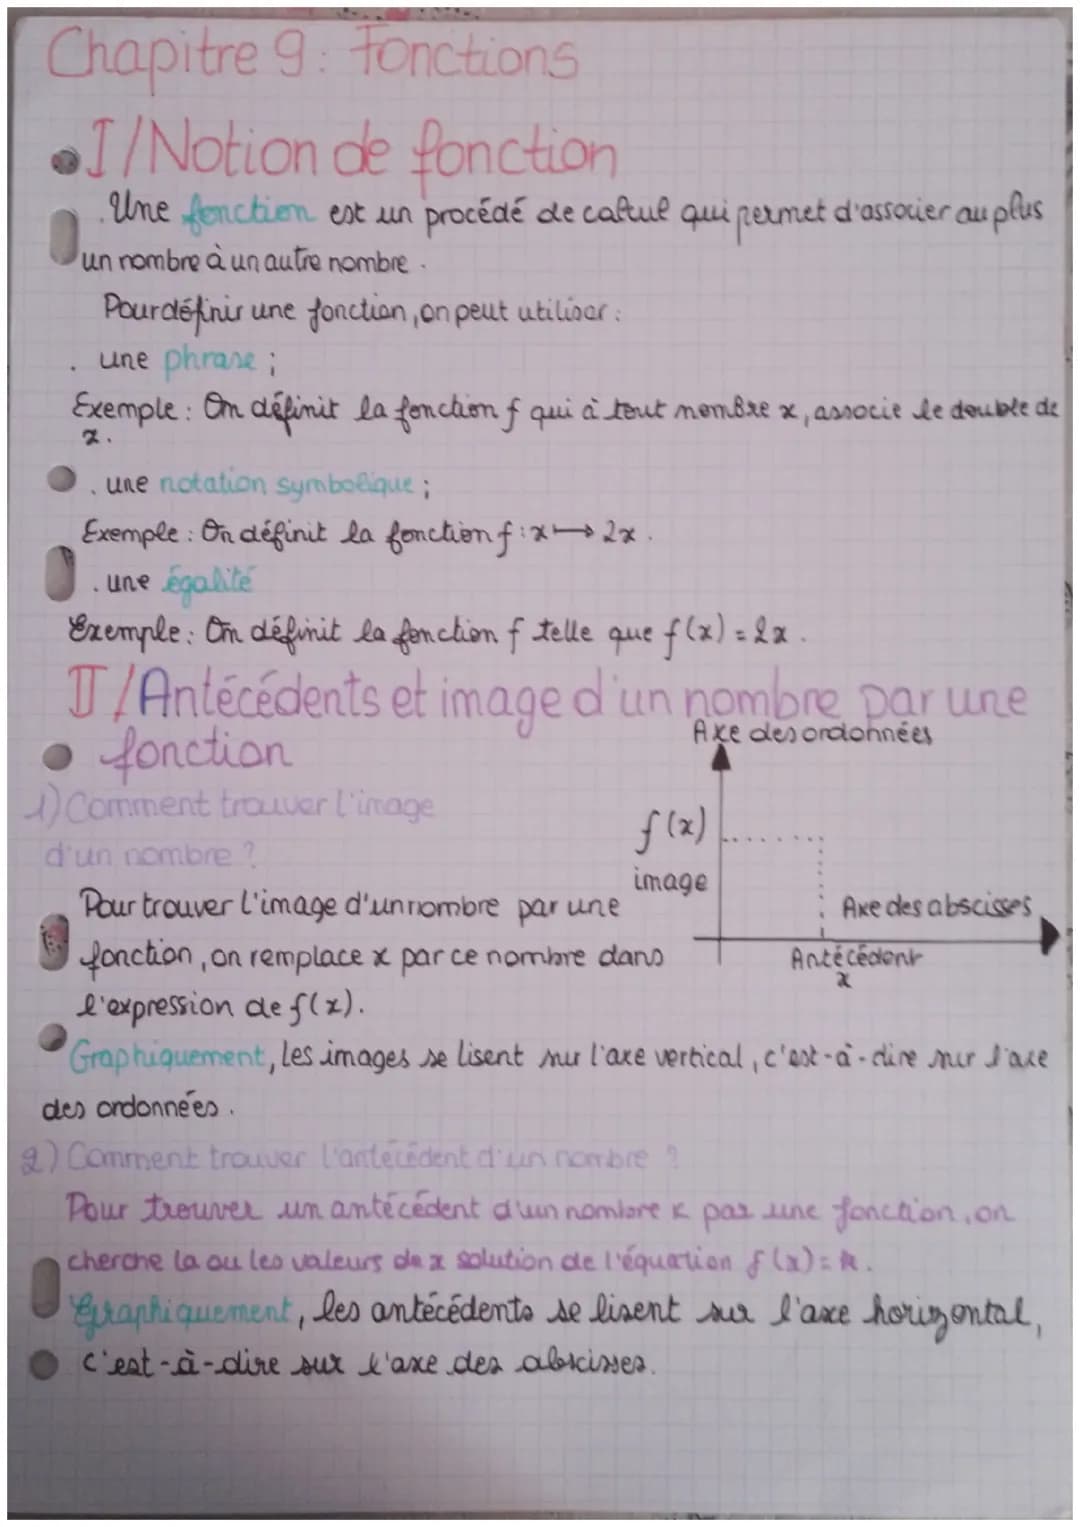 Chapitre 9 : Fonctions
I/Notion de fonction
. Une fonction est un procédé de calcul qui permet d'associer au plus
un nombre à un autre nombre .
Pour définir une fonction, on peut utiliser :
. une phrase ;
Exemple : On définit la fonction f qui à tout nombre x, associe le double de
x .
. une notation symbolique ;
Exemple : On définit la fonction f : x ⟼ 2x .
. une égalité
Exemple : On définit la fonction f telle que f(x) = 2x .
II/Antécédents et image d'un nombre par une
fonction
Axe des ordonnées
1) Comment trouver l'image
d'un nombre ?
f(x)
image
Axe des abscisses
Antécédent
x
Pour trouver l'image d'un nombre par une
fonction, on remplace x par ce nombre dans
l'expression de f(x).
Graphiquement, les images se lisent sur l'axe vertical, c'est-à-dire sur l'axe
des ordonnées .
2) Comment trouver l'antécédent d'un nombre ?
Pour trouver un antécédent d'un nombre k par une fonction, on
cherche la ou les valeurs de x solution de l'équation f(x) = k .
Graphiquement, les antécédents se lisent sur l'axe horizontal,
c'est-à-dire sur l'axe des abscisses.